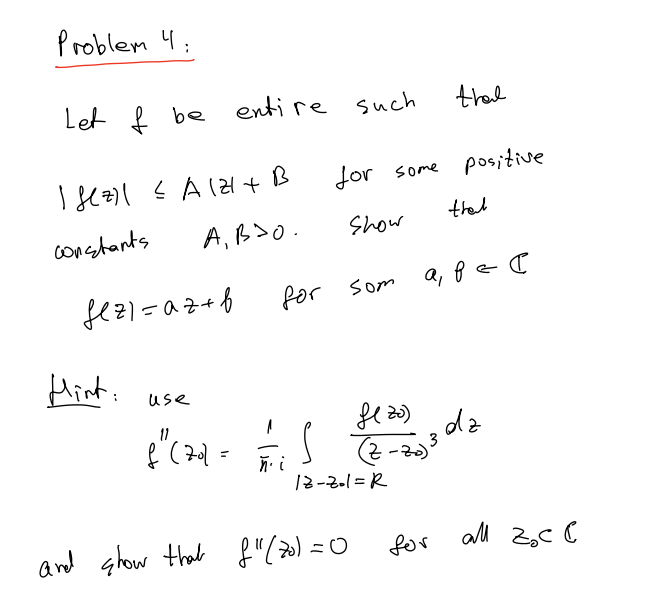 Problem 4:
Let f be entire such that
|f(z)| ≤ A|z| + B for some positive
constants A, B > 0. Show that
f(z) = az + b for som a, b ∈ ℂ
Hint: use
f''(z₀) = 1/(π·i) ∫_{|z-z₀|=R} f(z₀)/(z-z₀)³ dz
and show that f''(z₀) = 0 for all z₀ ⊂ ℂ